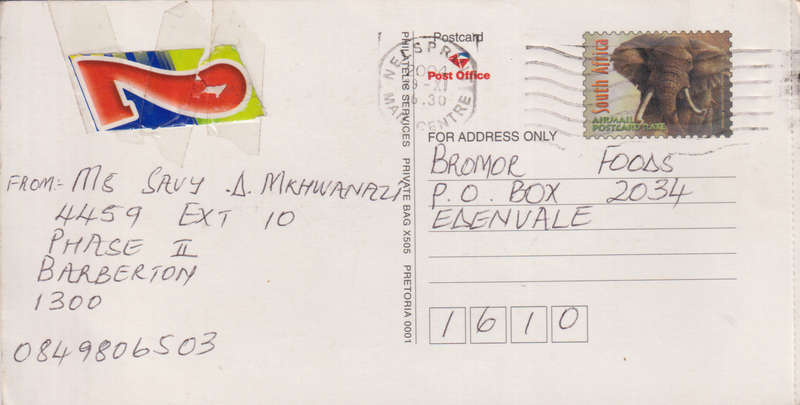 Postcard
NELSPR
2004
9-XI
6.30
MAIL CENTRE
Post Office
South Africa
AIRMAIL
POSTCARD RATE
FOR ADDRESS ONLY
BROMOR FOODS
P.O. BOX 2034
EDENVALE
1610
PHILATELIC SERVICES PRIVATE BAG X505 PRETORIA 0001
FROM:- MS SAVY .D. MKHWANAZI
4459 EXT 10
PHASE II
BARBERTON
1300
0849806503